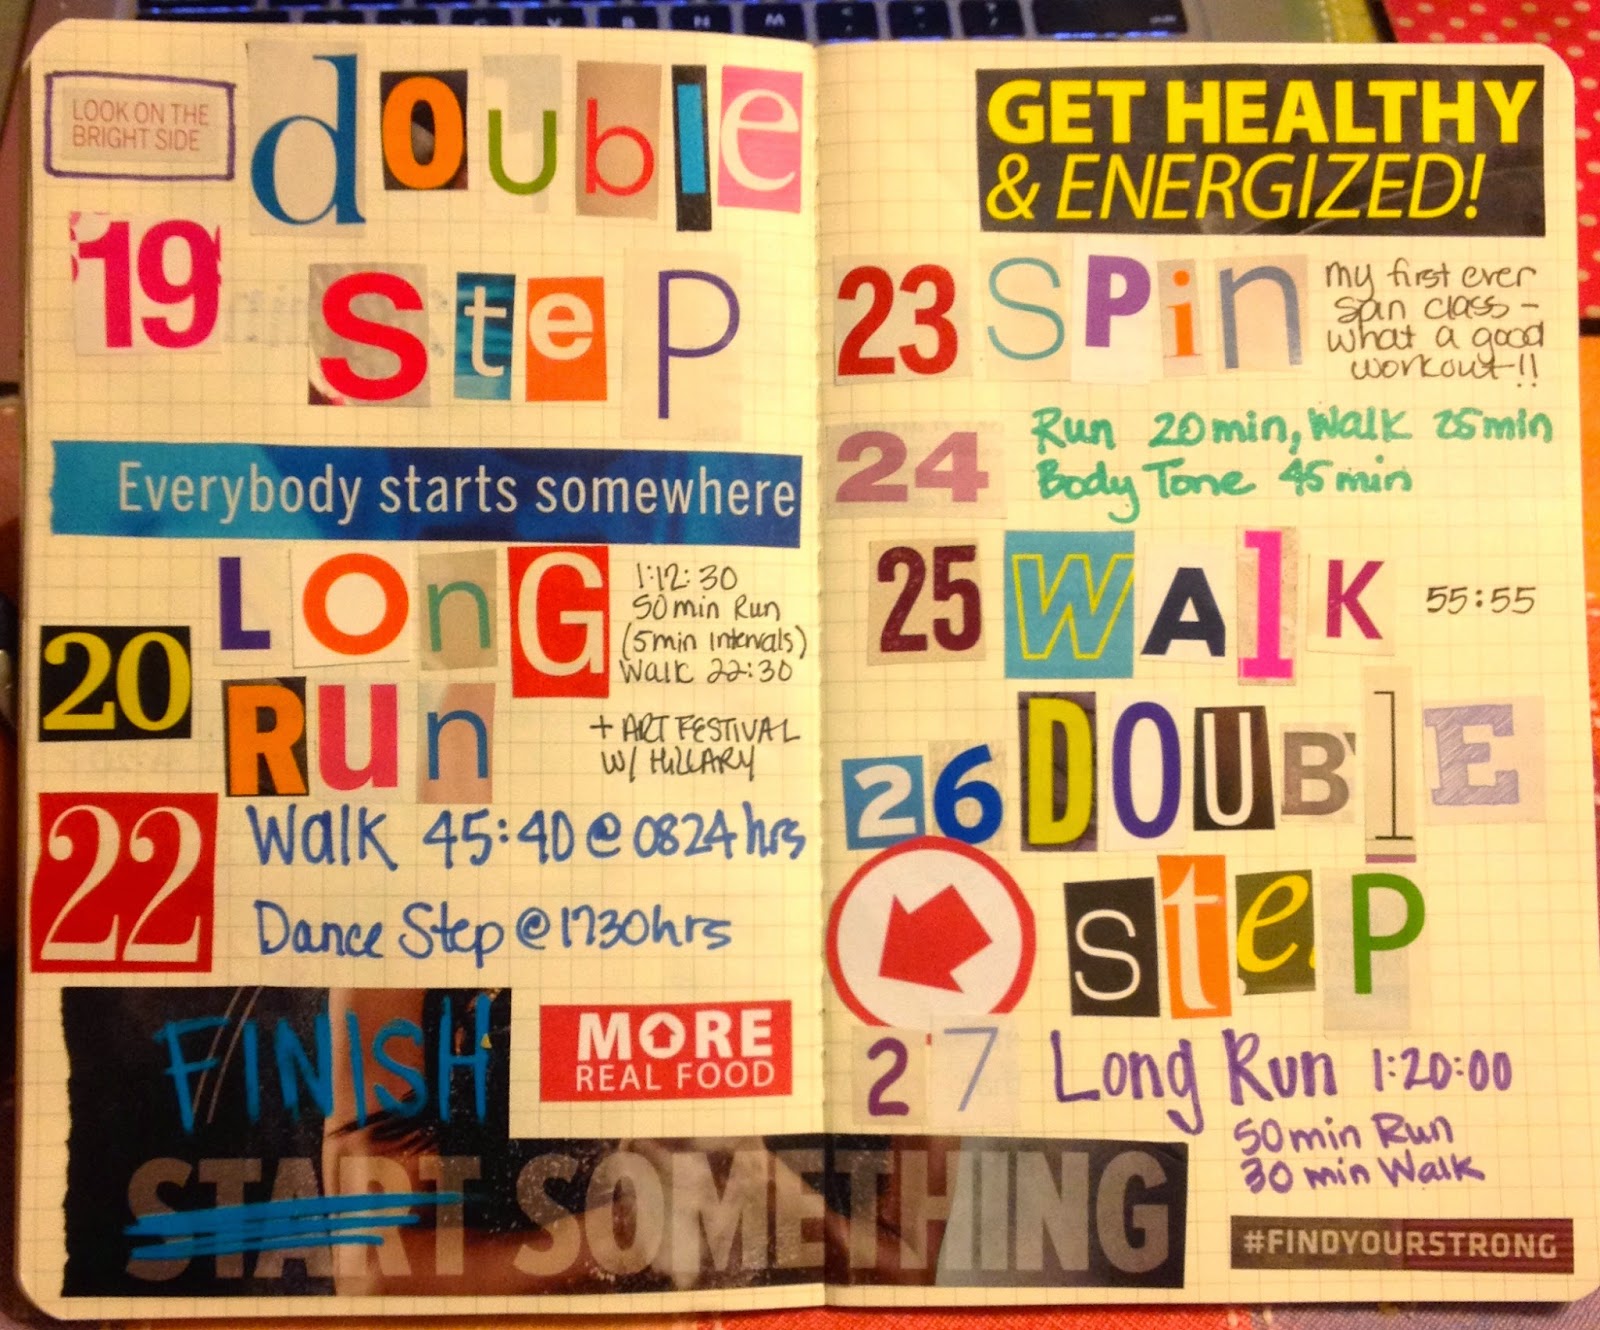 LOOK ON THE
BRIGHT SIDE
double
19
step
Everybody starts somewhere
20
LOnG
Run
1:12:30
50min Run
(5min intervals)
Walk 22:30
+ ART FESTIVAL
W/ HILLARY
22
Walk 45:40 @ 0824hrs
Dance Step @ 1730hrs
FINISH
MORE
REAL FOOD
START SOMETHING
GET HEALTHY
& ENERGIZED!
23 SPin
my first ever
spin class –
what a good
workout!!
24
Run 20min, Walk 25min
Body Tone 45min
25 WAlK 55:55
26 DOUBlE
steP
27
Long Run 1:20:00
50min Run
30 min Walk
#FINDYOURSTRONG